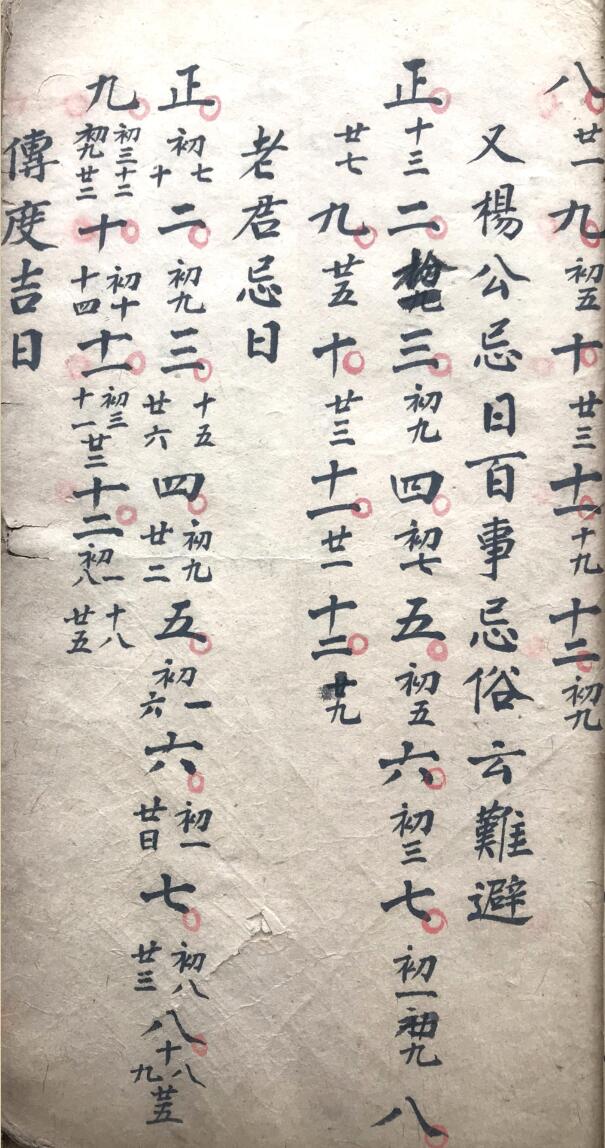 八廿一九初五十廿三十一十九十二初九
又楊公忌日百事忌俗云難避
正十三二三初九四初七五初五六初三七初一九八
廿七九廿五十廿三十一廿一十二廿九
老君忌日
正初七十二初九三十五廿六四初九廿二五初一六六初一廿日七初八廿三八十八九廿五
九初三十二初九廿二十初十十四十一初三十一廿三十二初一八十八廿五
傳度吉日